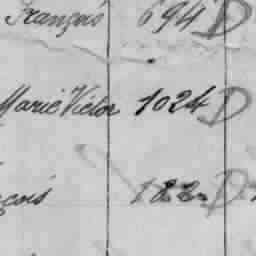 François 694 D
Marie Victor 1024 D
çois 182 D